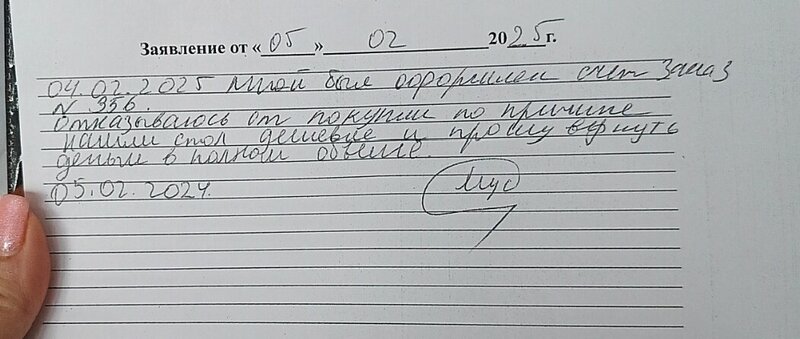 Заявление от «05» 02 2025 г.
04.02.2025 мной был оформлен счет заказ
N 356.
Отказываюсь от покупки по причине
нашли стол дешевле и прошу вернуть
деньги в полном объеме.
05.02.2024.
Мус